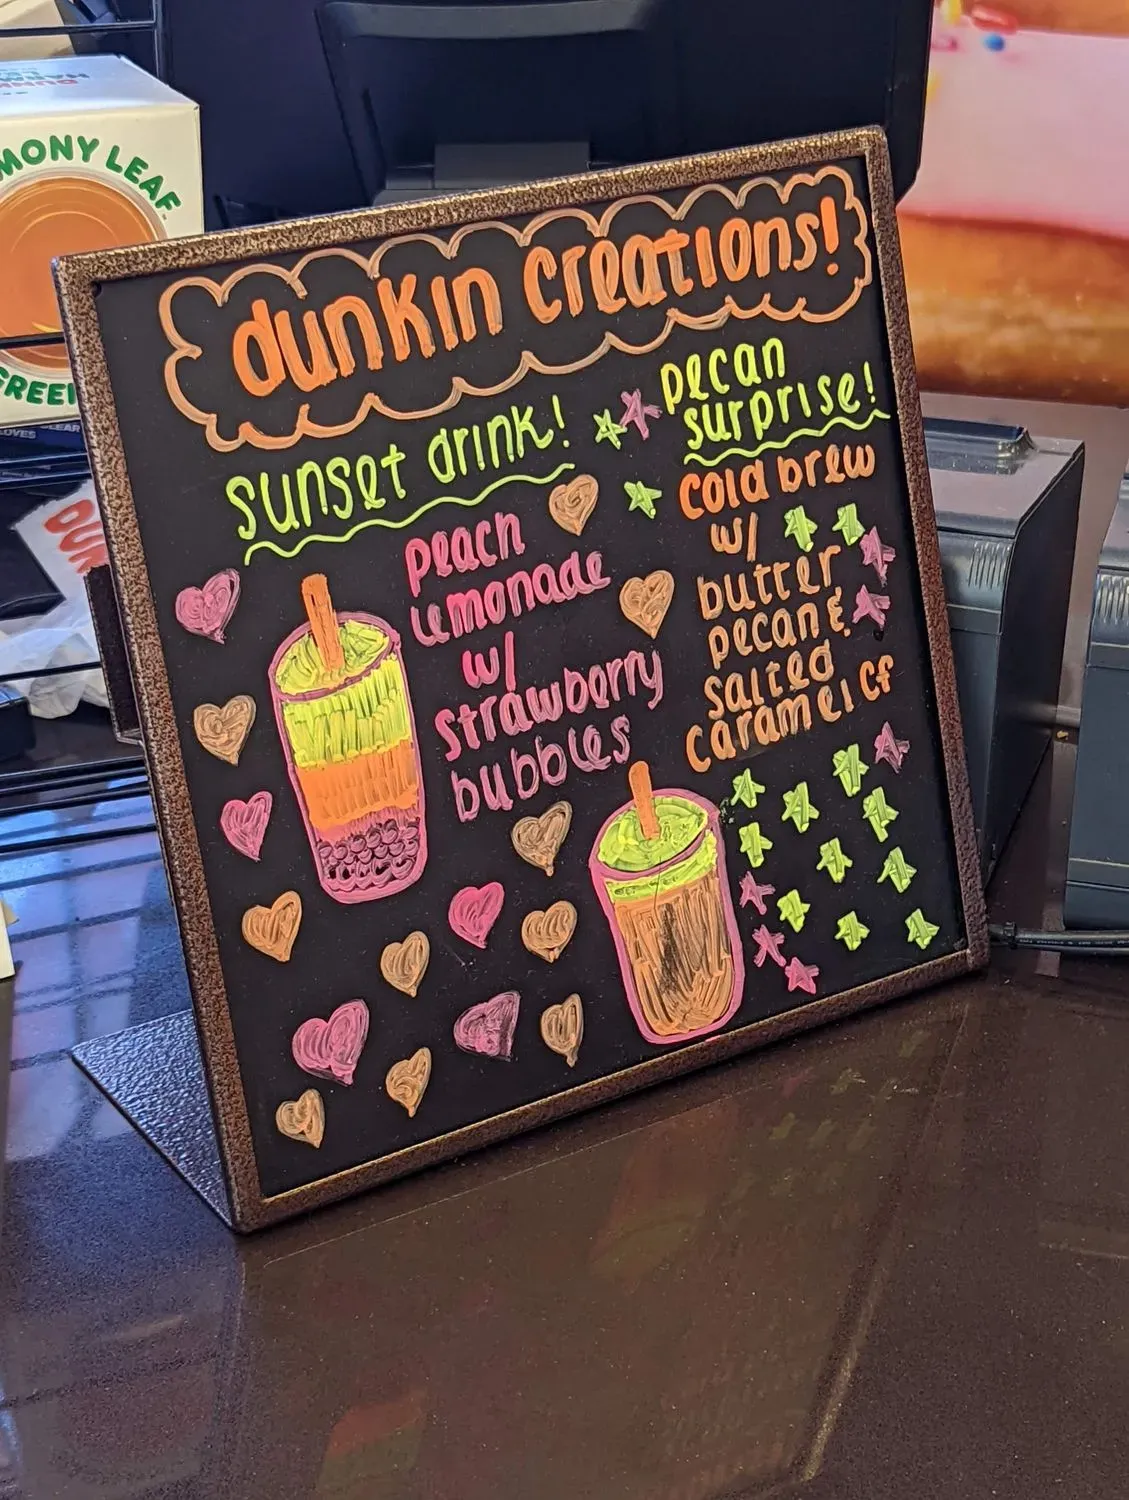 MONY LEAF
GREEN
dunkin creations!
sunset drink!
peach
lemonade
w/
strawberry
bubbles
pecan
surprise!
cold brew
w/
butter
pecan &
salted
caramel cf